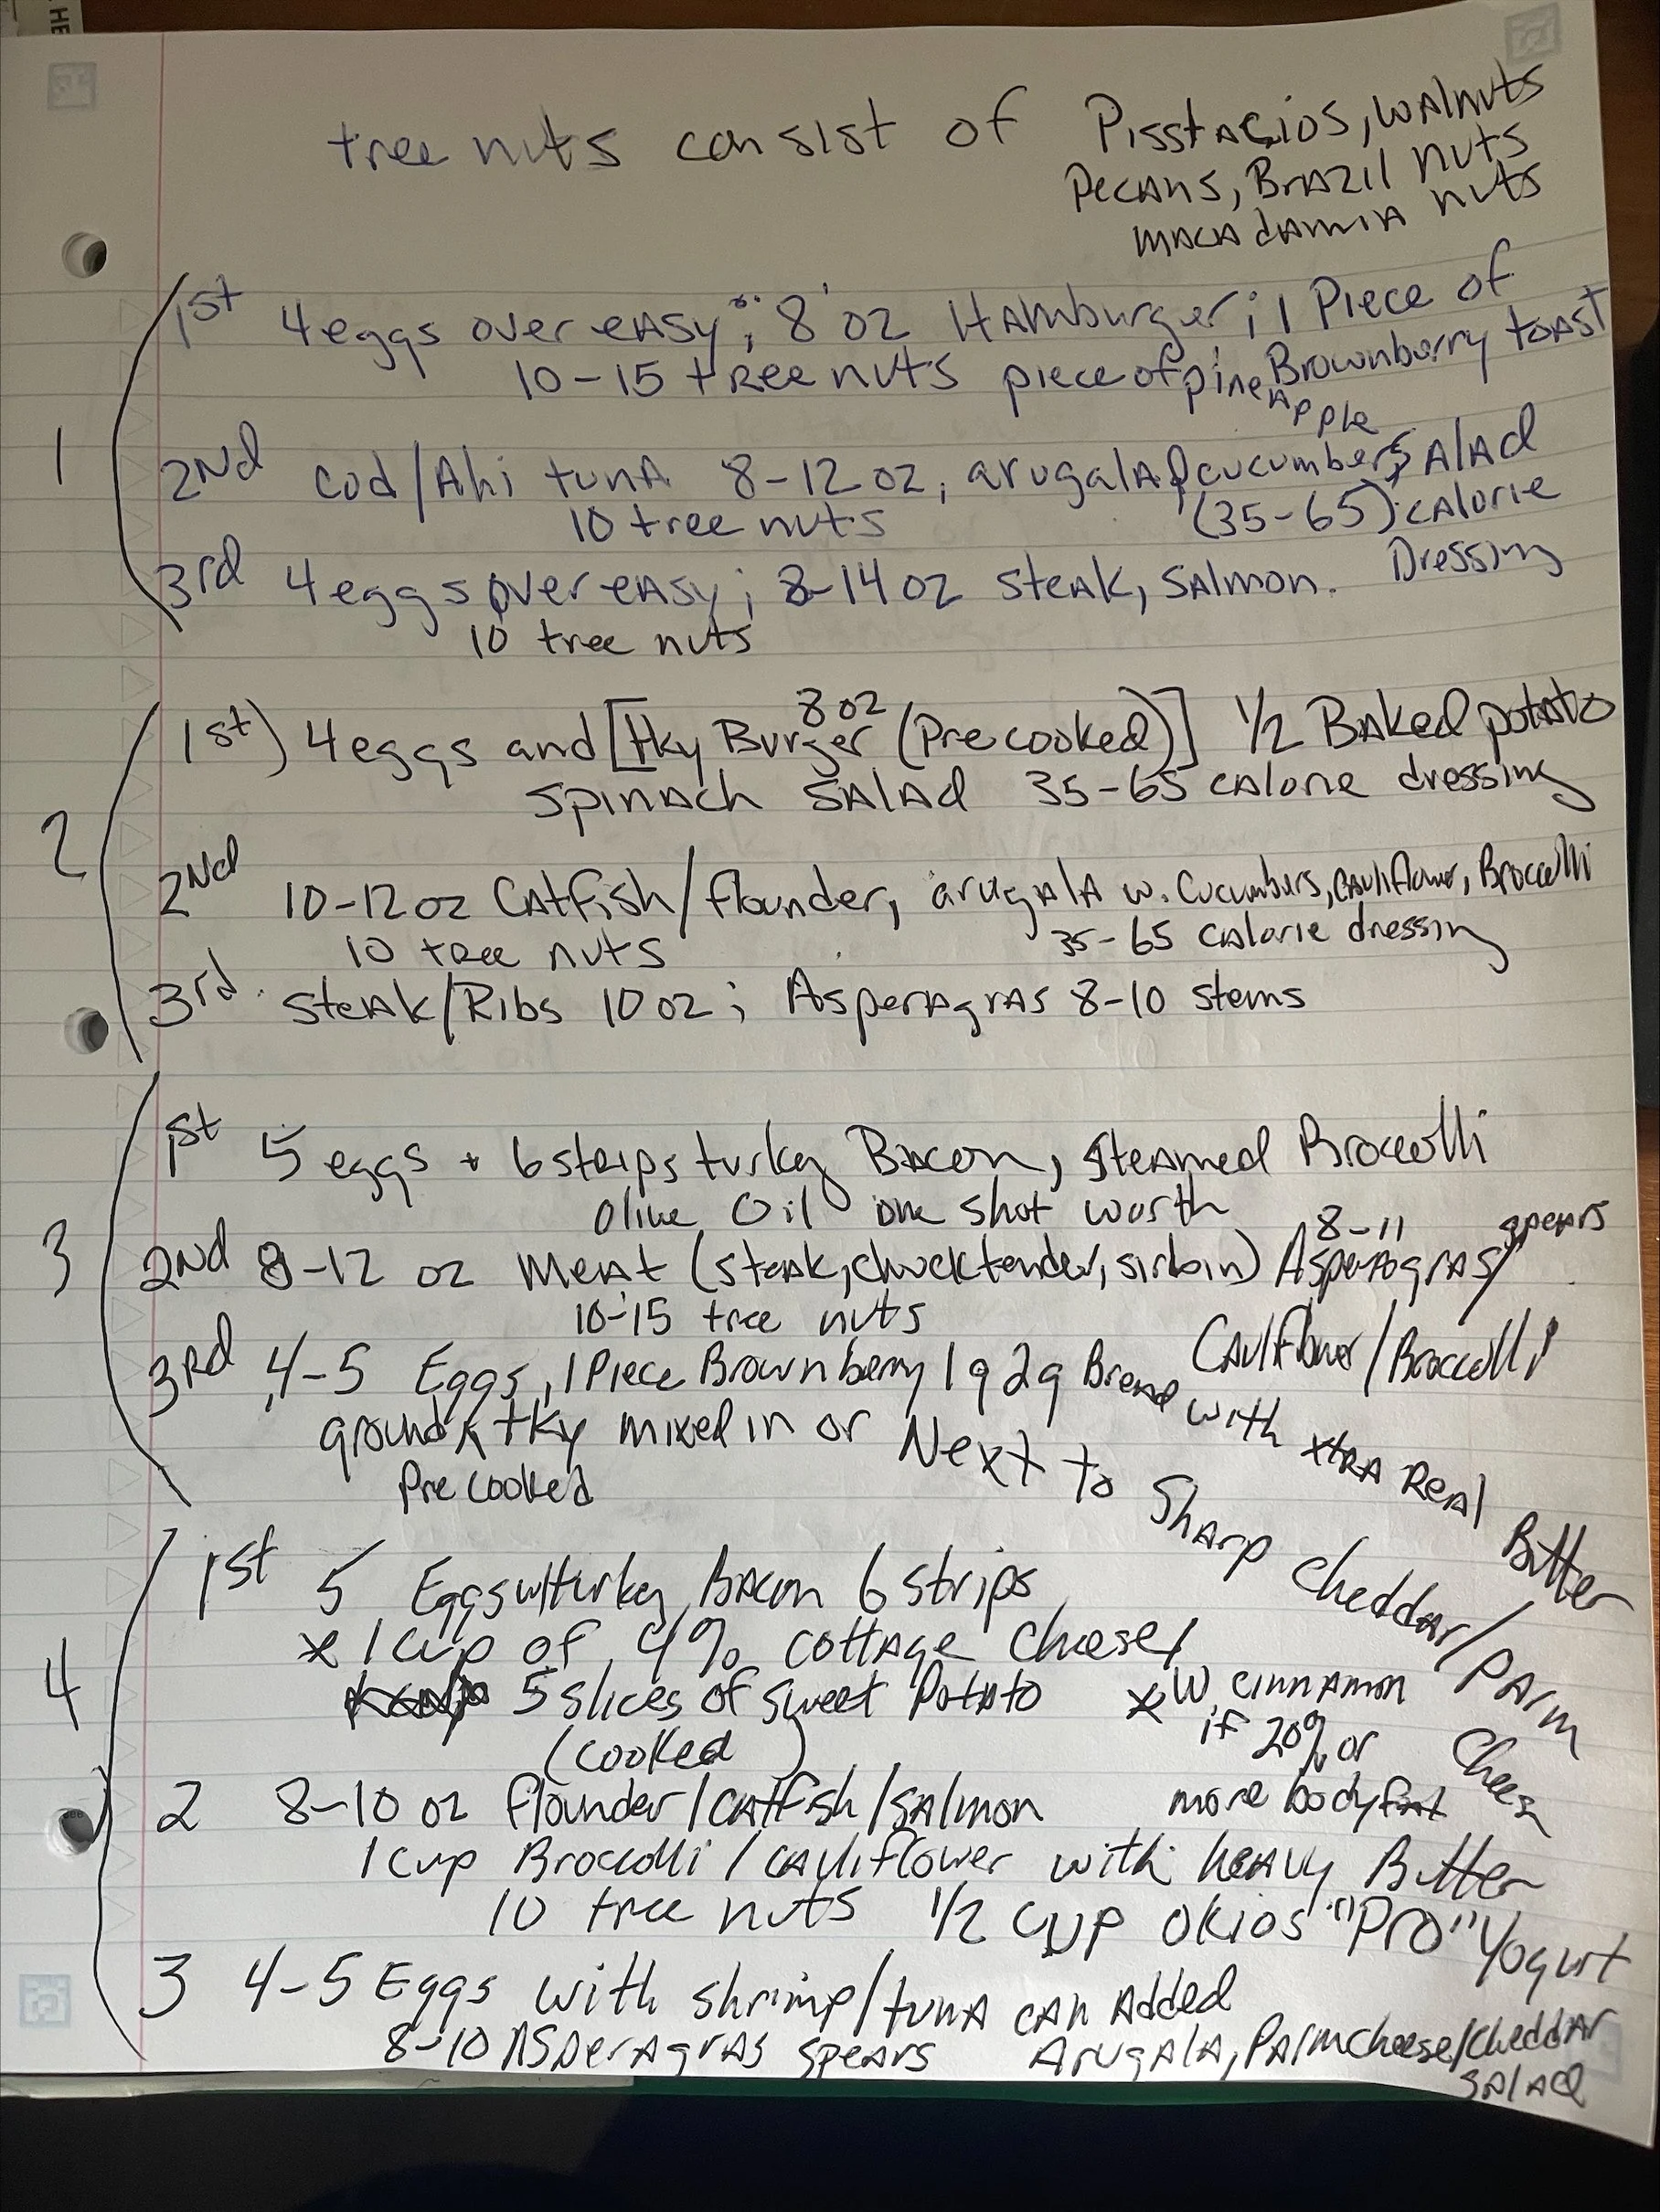 HE
tree nuts consist of Pisstacios, walnuts
Pecans, Brazil nuts
macadamia nuts
1st 4 eggs over easy; 8 oz Hamburger; 1 Piece of
Brownberry toast
10-15 tree nuts piece of pineapple
1
2nd Cod/Ahi tuna 8-12 oz, arugala & cucumbers salad
10 tree nuts (35-65) calorie
Dressing
3rd 4 eggs over easy; 8-14 oz steak, salmon.
10 tree nuts
1st) 4 eggs and [tky Burger 8 oz (Precooked)] 1/2 Baked potato
spinach salad 35-65 calorie dressing
2
2nd 10-12 oz Catfish/flounder, arugala w. Cucumbers, cauliflower, Broccolli
10 tree nuts 35-65 calorie dressing
3rd. Steak/Ribs 10 oz; Asperagras 8-10 stems
1st 5 eggs + 6 steips turkey Bacon, steamed Broccolli
olive oil one shot worth
3
2nd 8-12 oz meat (steak, chuck tender, sirloin) 8-11 Asperagras spears
10-15 tree nuts
3rd 4-5 Eggs, 1 Piece Brownberry 1g 2g Bread Cauliflower/Broccolli
with xtra Real Butter
ground tky mixed in or Next to Sharp cheddar/Parm Cheese
Precooked
1st 5 Eggs w/turkey Bacon 6 strips
x 1 cup of 4% cottage cheese/
4
5 slices of sweet Potato x W. cinnamon
(cooked) if 20% or
more bodyfat
2 8-10 oz flounder/catfish/salmon
1 cup Broccolli/cauliflower with heavy Butter
10 tree nuts 1/2 cup okios "Pro" Yogurt
3 4-5 Eggs with shrimp/tuna can Added
8-10 Asperagras spears Arugala, Parmcheese/cheddar
salad